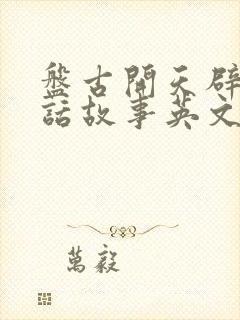 盤古開天辟
話故事英文
萬毅